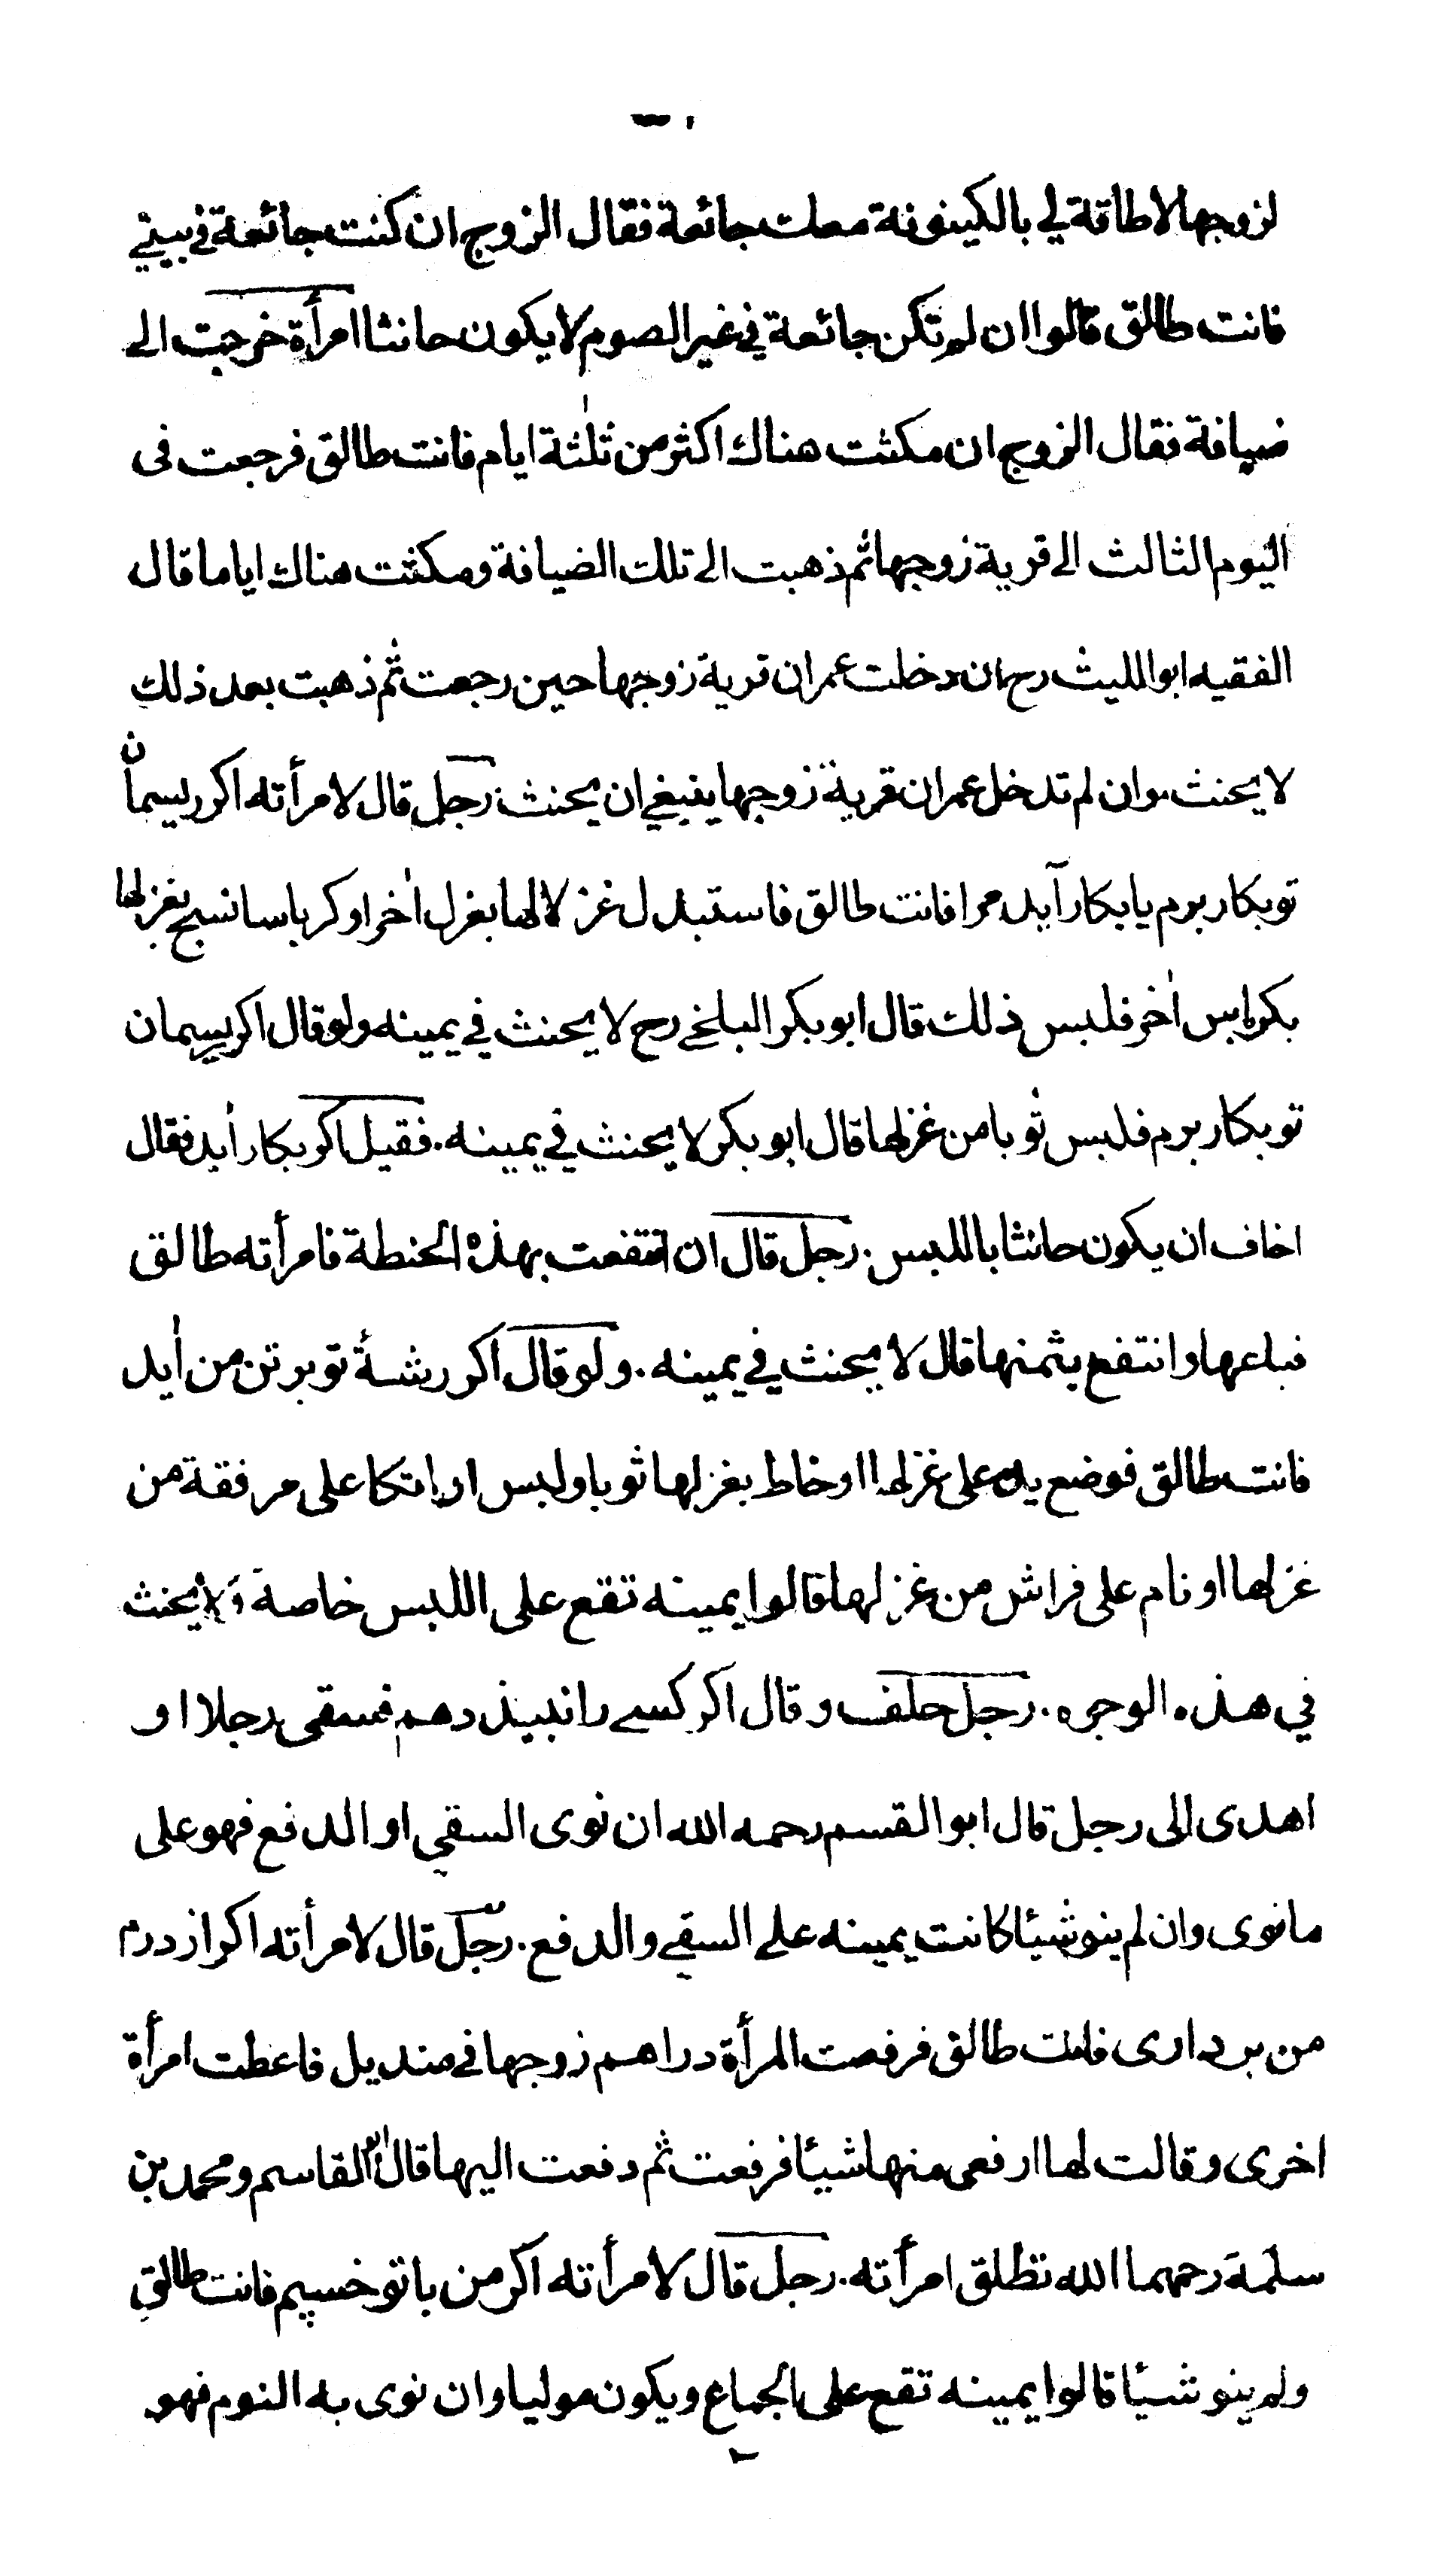 لزوجها لا طاقة لي بالكينونة معك جائعة فقال الزوج ان كنت جائعة في بيتي
فانت طالق قالوا ان لم تكن جائعة في غير الصوم لا يكون حانثا امرأة خرجت الى
ضيافة فقال الزوج ان مكثت هناك اكثر من ثلثة ايام فانت طالق فرجعت فى
اليوم الثالث الى قرية زوجها ثم ذهبت الى تلك الضيافة ومكثت هناك اياما قال
الفقيه ابو الليث رح ان دخلت عمران قرية زوجها حين رجعت ثم ذهبت بعد ذلك
لا يحنث وان لم تدخل عمران قرية زوجها ينبغي ان يحنث رجل قال لامرأته اكر ريسمان
تو بكار برم يا بكار آيد مرا فانت طالق فاستبدل غزلا لها بغزل اخر او كرباسا نسج بغزلها
بكرباس اخر فلبس ذلك قال ابو بكر البلخي رح لا يحنث في يمينه ولو قال اكر ريسمان
تو بكار برم فلبس ثوبا من غزلها قال ابو بكر لا يحنث في يمينه . فقيل اكر بكار أيد فقال
اخاف ان يكون حانثا باللبس . رجل قال ان انتفعت بهذه الحنطة فامرأته طالق
فباعها وانتفع بثمنها قال لا يحنث في يمينه . ولو قال اكر رشتۀ تو بر تن من أيد
فانت طالق فوضع يده على غزلها او خاط بغزلها ثوبا ولبس او اتكا على مرفقة من
غزلها او نام على فراش من غزلها قالوا يمينه تقع على اللبس خاصة ولا يحنث
في هذه الوجوه . رجل حلف وقال اكر كسے را نبيذ دهم فسقى رجلا او
اهدى الى رجل قال ابو القسم رحمه الله ان نوى السقي او الدفع فهو على
ما نوى وان لم ينو شيئا كانت يمينه على السقي والدفع . رجل قال لامرأته اكر از درم
من بر دارى فانت طالق فرفعت المرأة دراهم زوجها في منديل فاعطت امرأة
اخرى وقالت لها ارفعى منها شيئا فرفعت ثم دفعت اليها قال ابو القاسم ومحمد بن
سلمة رحمهما الله تطلق امرأته . رجل قال لامرأته اكر من با تو خسپم فانت طالق
ولم ينو شيئا قالوا يمينه تقع على الجماع ويكون موليا وان نوى به النوم فهو